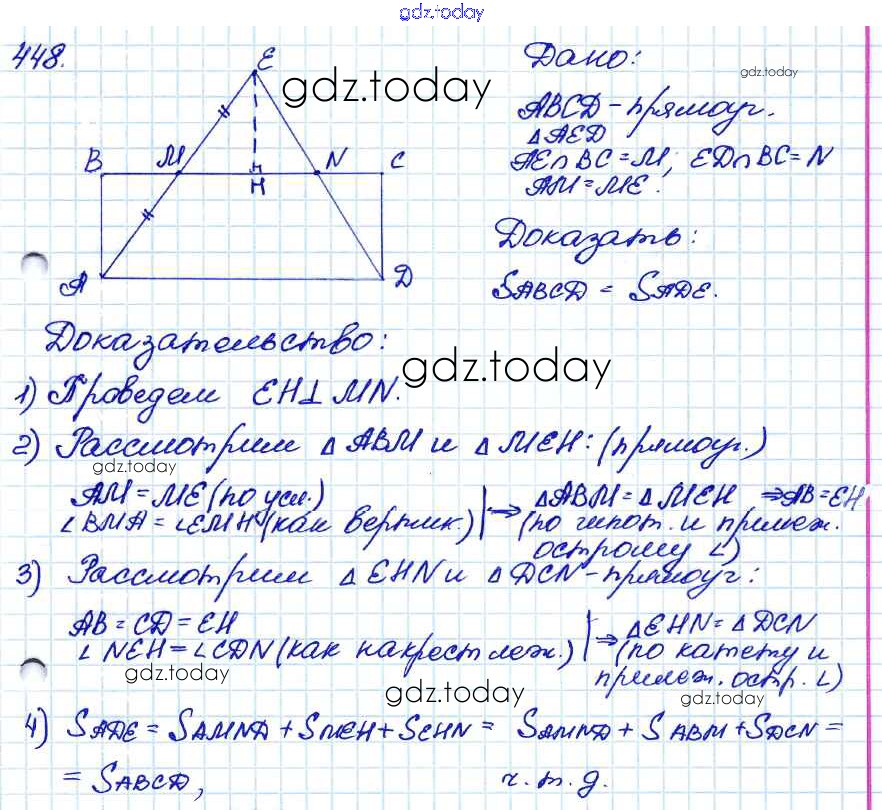 gdz.today
448.
E
gdz.today
B M H N C
A D
Дано:
gdz.today
ABCD - прямоуг.
△AED
AE∩BC=M; ED∩BC=N
AM=ME.
Доказать:
SABCD = SADE.
Доказательство:
gdz.today
1) Проведем EH⊥MN.
2) Рассмотрим △ABM и △MEH: (прямоуг.)
gdz.today
AM=ME (по усл.)
∠BMA=∠EMH (как вертик.)
⇒ △ABM=△MEH ⇒AB=EH
(по гипот. и прилеж.
острому ∠)
3) Рассмотрим △EHN и △DCN - прямоуг:
AB=CD=EH
∠NEH=∠CDN (как накрест леж.)
⇒ △EHN=△DCN
(по катету и
прилеж. остр. ∠)
gdz.today
gdz.today
gdz.today
4) SADE = SAMND + SMEH + SEHN = SAMND + SABM + SDCN =
= SABCD, ч.т.д.